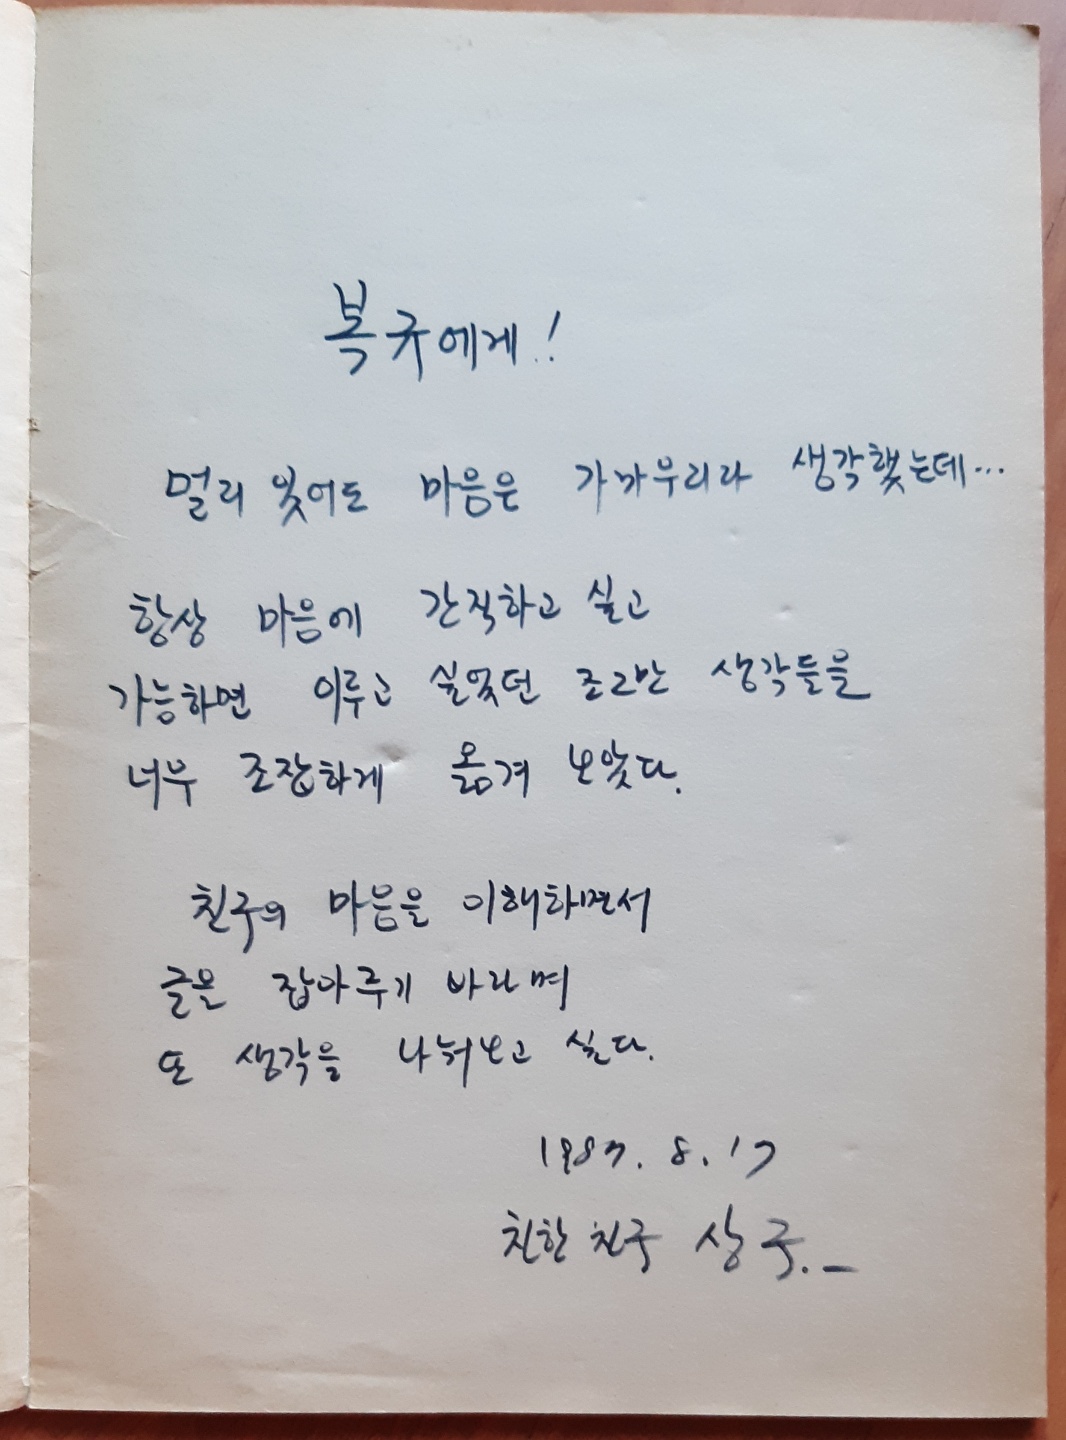 복규에게!
멀리 있어도 마음은 가까우리라 생각했는데...
항상 마음에 간직하고 싶고
가능하면 이루고 싶었던 조그만 생각들을
너부 조잡하게 옮겨 보았다.
친구의 마음을 이해하면서
글을 잡아주기 바라며
또 생각을 나눠보고 싶다.
1987. 8. 17
친한 친구 상국.